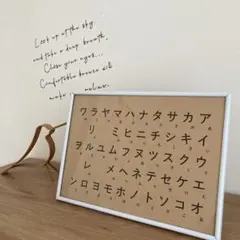 Look up at the sky
and take a deep breath,
Close your eyes...
Comfortable breeze will
make relax.
アイウエオ
カキクケコ
サシスセソ
タチツテト
ナニヌネノ
ハヒフヘホ
マミムメモ
ヤユヨ
ラリルレロ
ワヲン